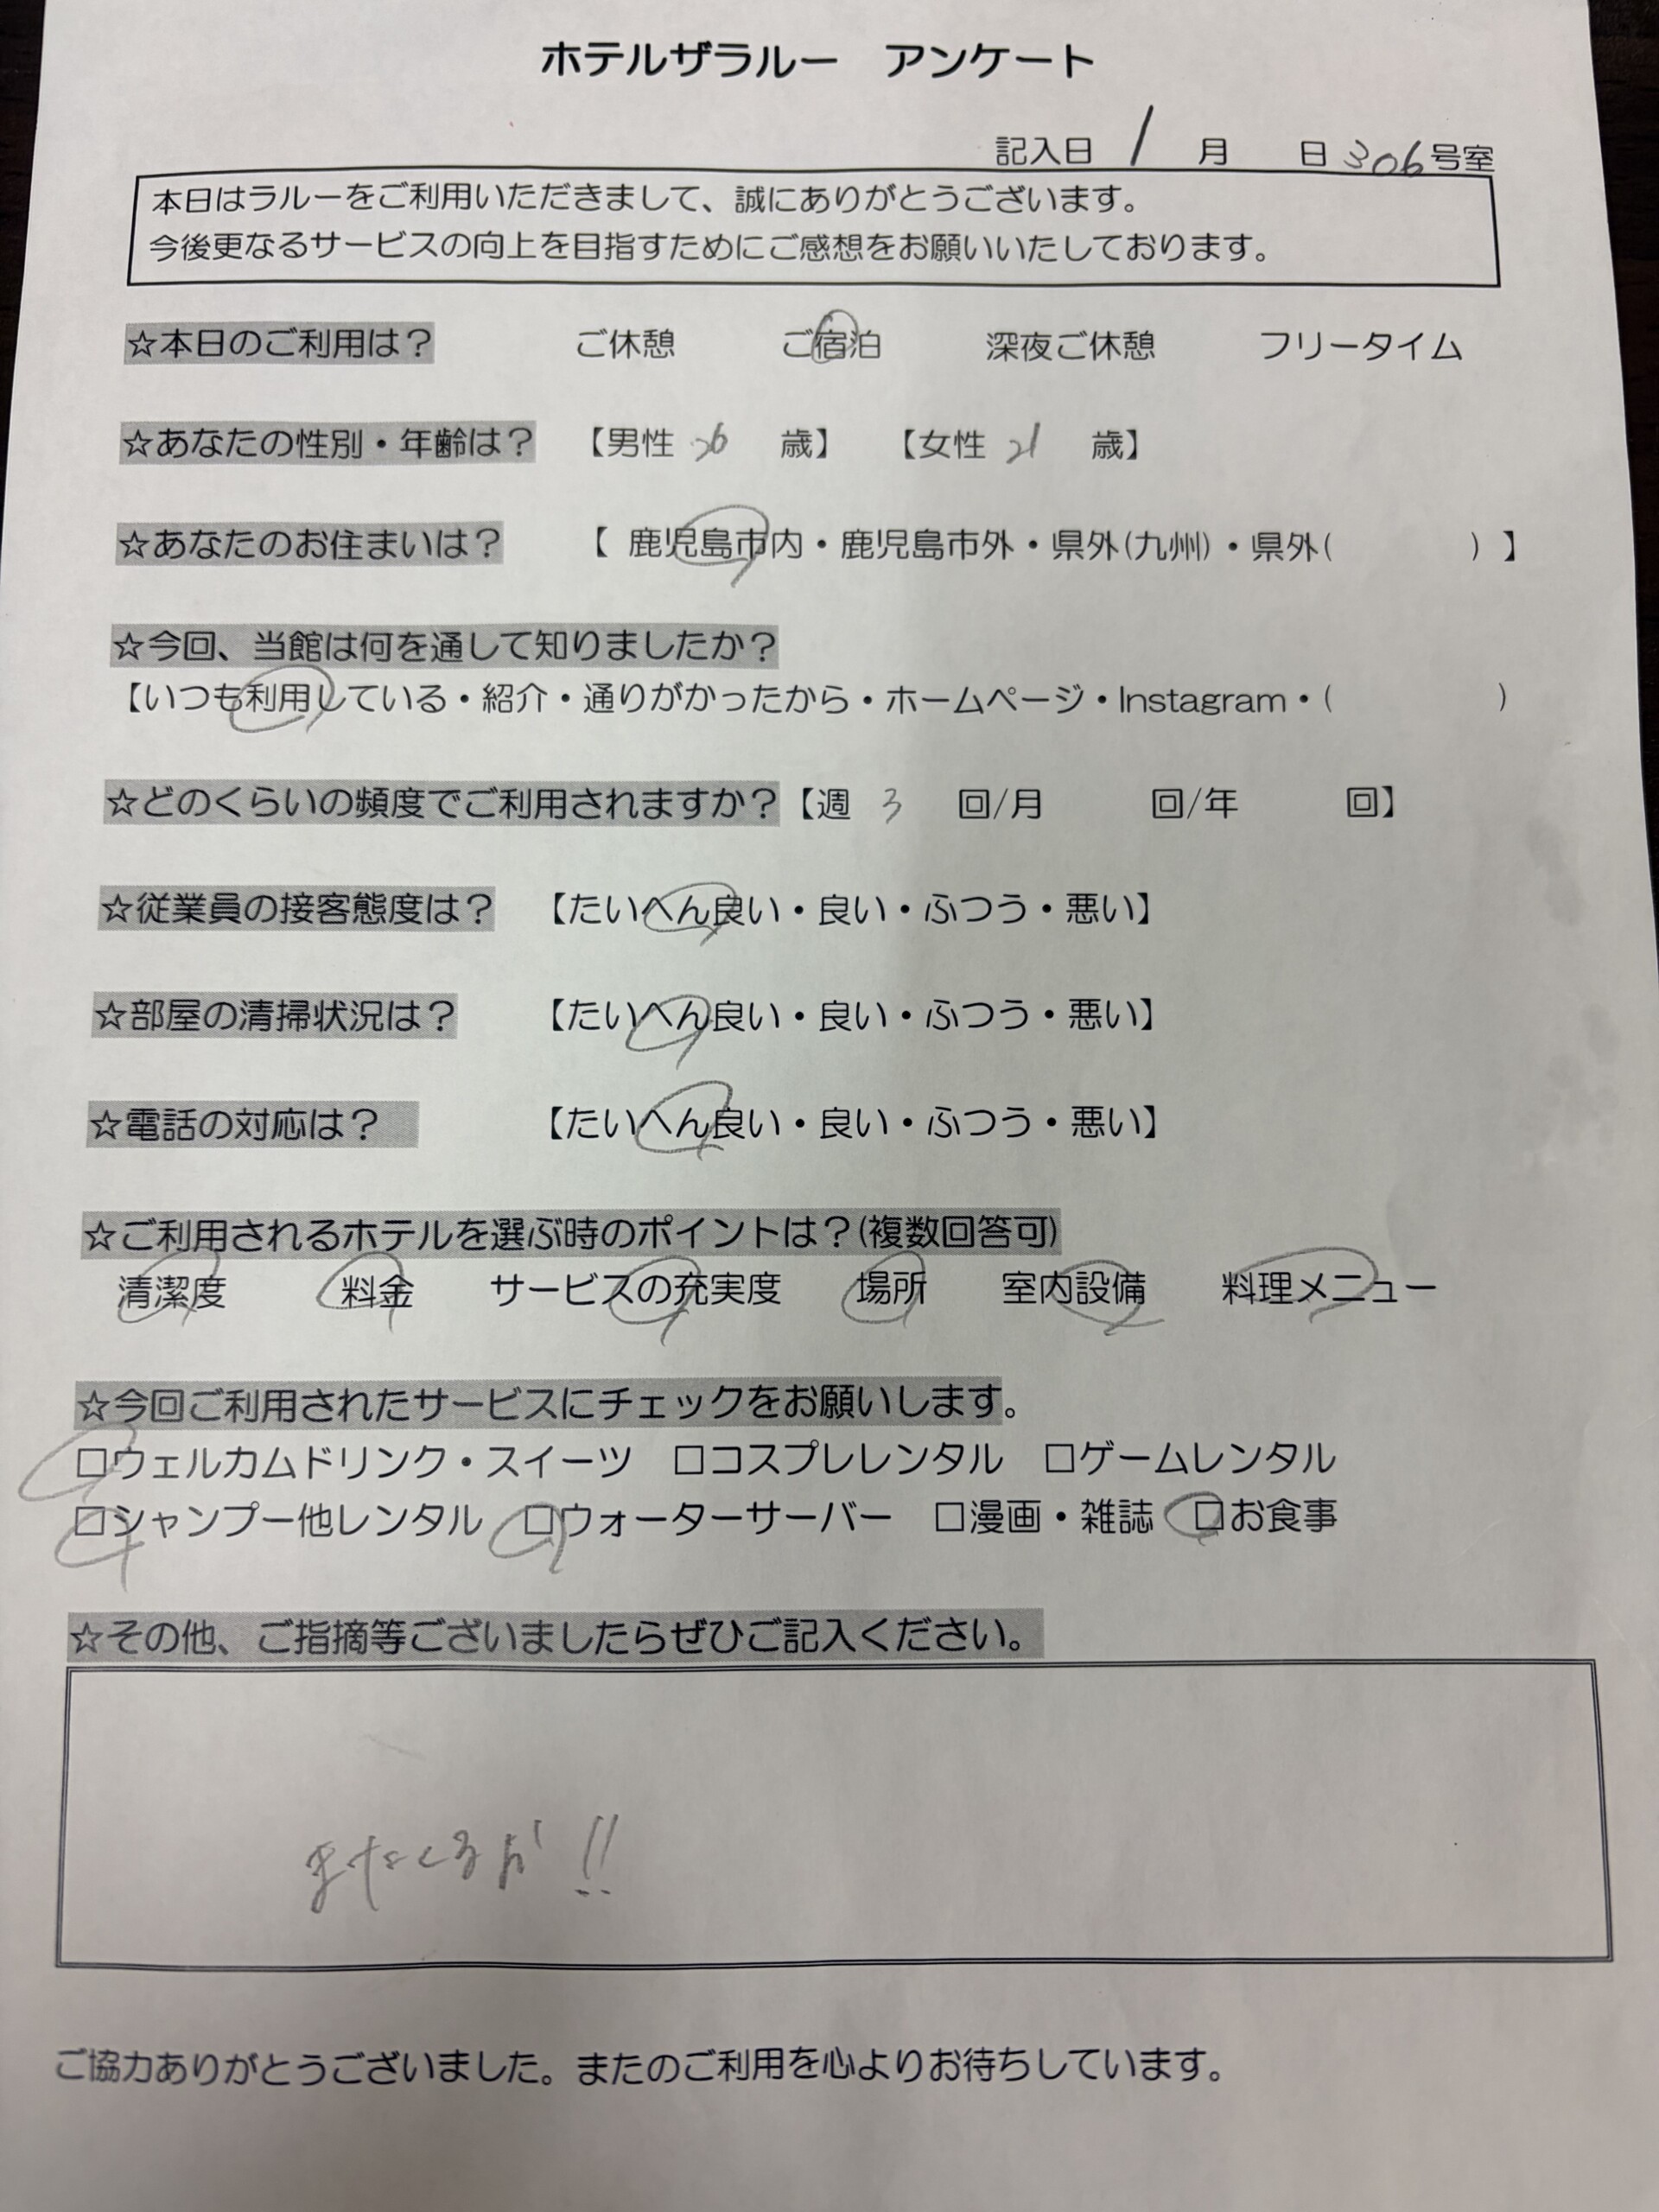 ホテルザラルー　アンケート
記入日 1 月　日 306号室
本日はラルーをご利用いただきまして、誠にありがとうございます。
今後更なるサービスの向上を目指すためにご感想をお願いいたしております。
☆本日のご利用は？　ご休憩　ご宿泊　深夜ご休憩　フリータイム
☆あなたの性別・年齢は？　【男性 26 歳】　【女性 21 歳】
☆あなたのお住まいは？　【 鹿児島市内・鹿児島市外・県外(九州)・県外(　　　) 】
☆今回、当館は何を通して知りましたか？
【いつも利用している・紹介・通りがかったから・ホームページ・Instagram・(　　　)
☆どのくらいの頻度でご利用されますか？【週 3 回/月　回/年　回】
☆従業員の接客態度は？　【たいへん良い・良い・ふつう・悪い】
☆部屋の清掃状況は？　【たいへん良い・良い・ふつう・悪い】
☆電話の対応は？　【たいへん良い・良い・ふつう・悪い】
☆ご利用されるホテルを選ぶ時のポイントは？(複数回答可)
清潔度　料金　サービスの充実度　場所　室内設備　料理メニュー
☆今回ご利用されたサービスにチェックをお願いします。
□ウェルカムドリンク・スイーツ　□コスプレレンタル　□ゲームレンタル
□シャンプー他レンタル　□ウォーターサーバー　□漫画・雑誌　□お食事
☆その他、ご指摘等ございましたらぜひご記入ください。
またくるが!!
ご協力ありがとうございました。またのご利用を心よりお待ちしています。